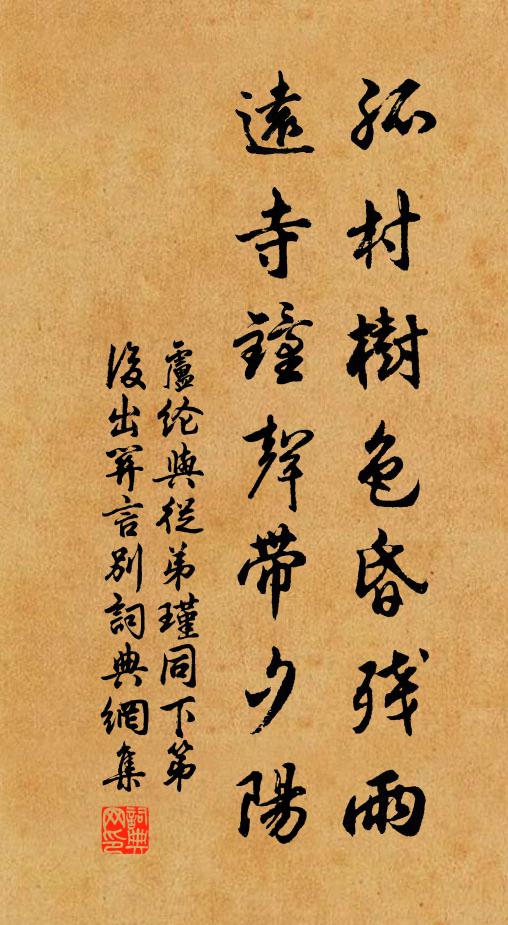 孤村樹色昏残雨
遠寺鐘聲帶夕陽
盧纶與從弟瑾同下第
後出關言別詞典網集
詞典
网印